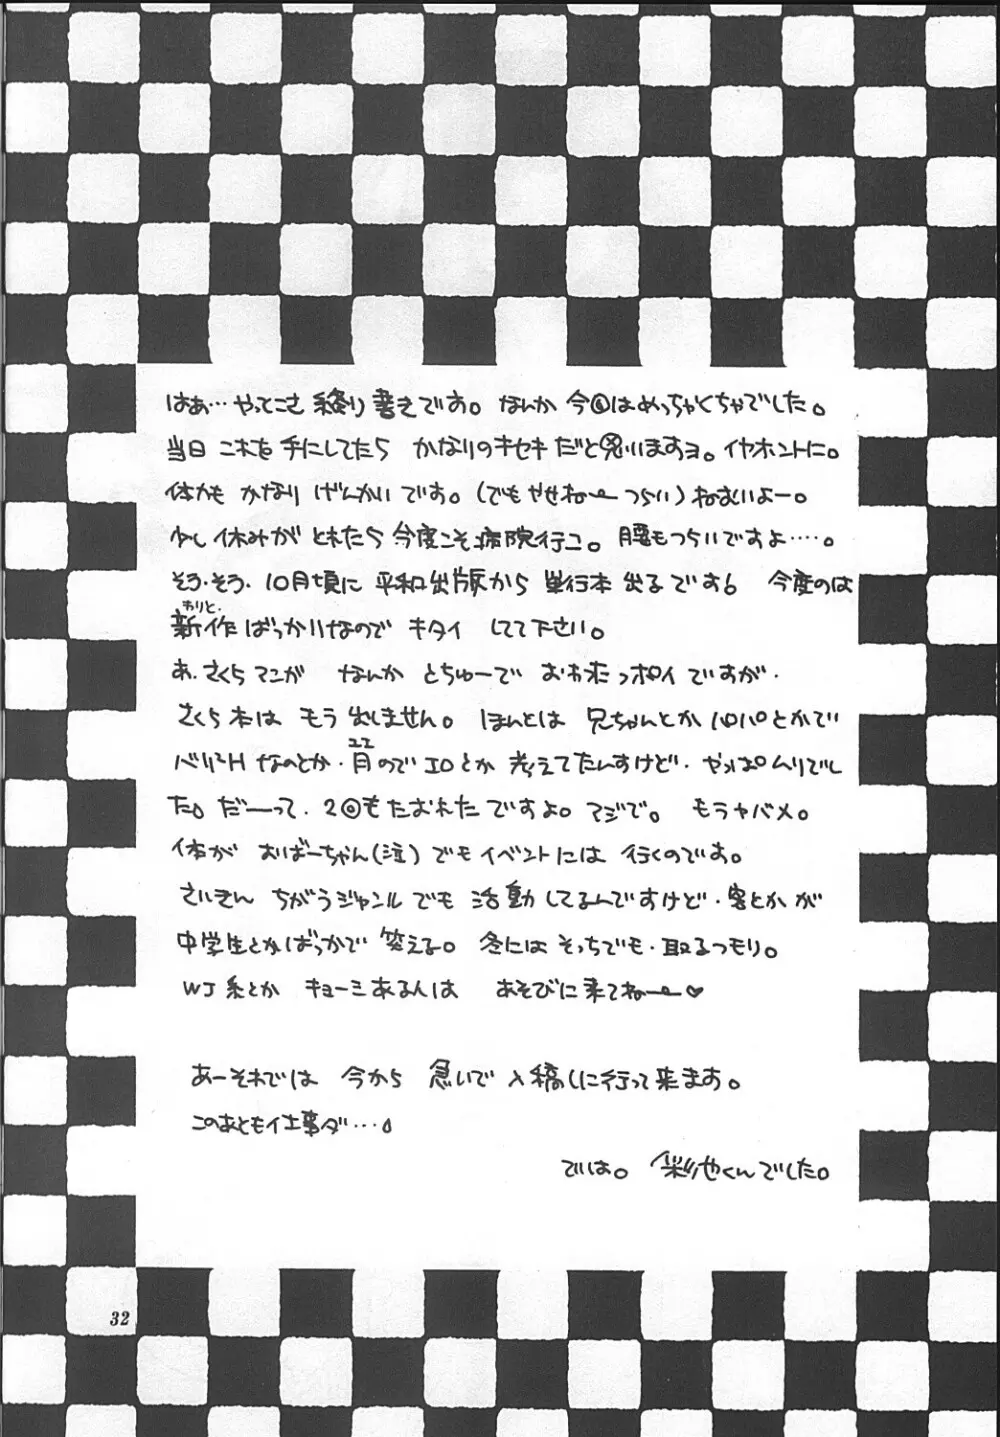 はぁ…やってこさ 終り書きです。なんか 今回はめっちゃくちゃでした。
当日 これを 手にしてたら かなりのキセキだと思いますヨ。イヤホントに。
体力も かなり げんかいです。(でもやせねーつらい)ねむいよー。
少し 休みが とれたら 今度こそ病院行こ。 腰もつらいですよ‥‥。
そう・そう・10月頃に 平和出版から 単行本 出るです。 今度のは
わりと
新作ばっかりなので キタイ してて下さい。
あ・さくらマンガ なんか とちゅーで おわったっポイですが・
さくら本は もう 出しません。 ほんとは 兄ちゃんとか パパとかで
ユエ
バリ²Hなのとか・月のでエロとか 考えてたんすけど・やっぱムリでし
た。だーって・2回もたおれたですよ。マジで。 モウヤバメ。
体が おばーちゃん(泣)でもイベントには 行くのです。
さいきん ちがうジャンルでも 活動してるんですけど・客とかが
中学生とかばっかで 笑える。 冬には そっちでも・取るつもり。
WJ系とか キョーミあるんは あそびに来てねー♡
あーそれでは 今から 急いで 入稿しに行って来ます。
このあともイ士事ダ…
では。 彩池くんでした。
32